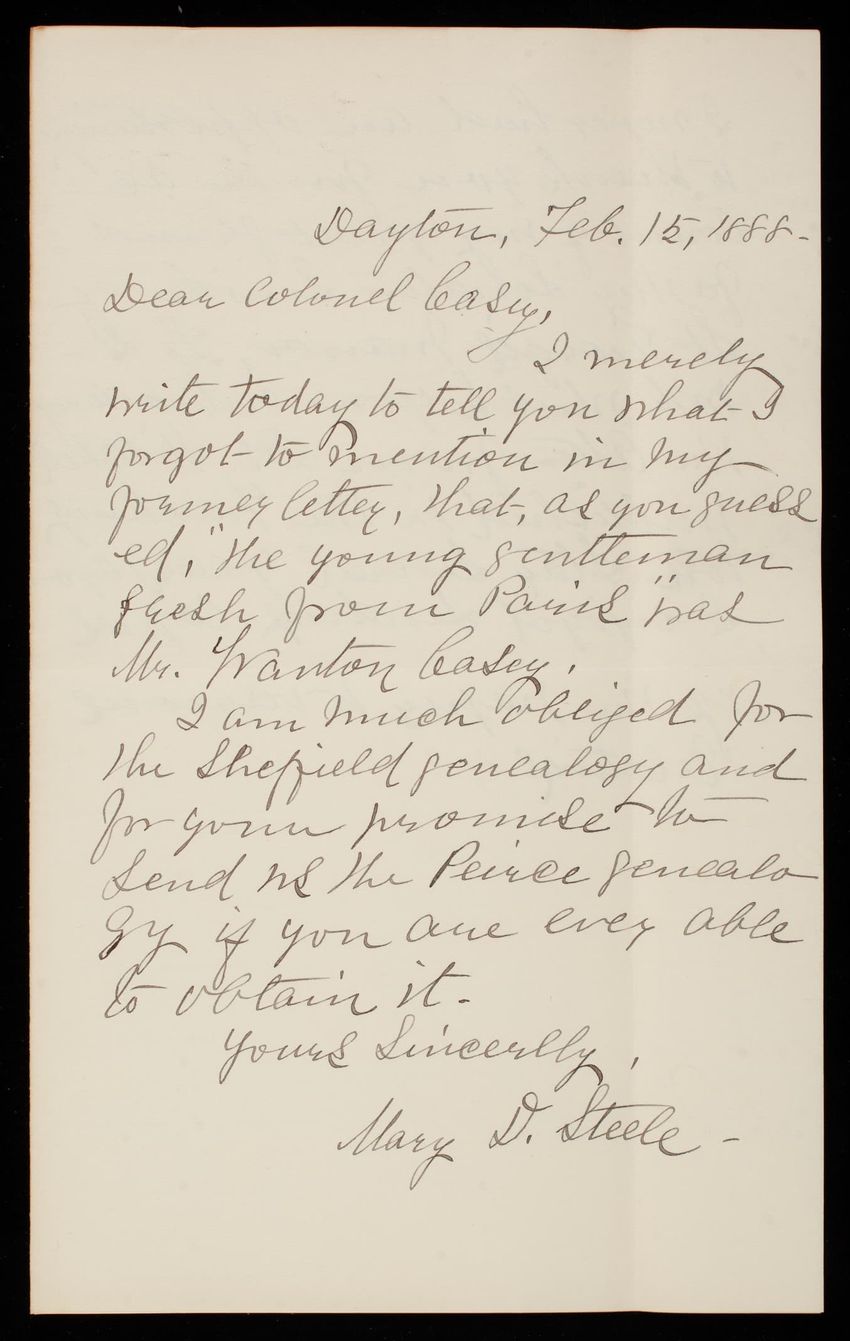 Dayton, Feb. 15, 1888-
Dear Colonel Casey,
I merely
write today to tell you what I
forgot to mention in my
former letter, that, as you guess
ed, "the young gentleman
fresh from Paris" was
Mr. Wanton Casey.
I am much obliged for
the Sheffield genealogy and
for your promise to
send us the Peirce genealo
gy if you are ever able
to obtain it.
Yours Sincerely,
Mary D. Steele-